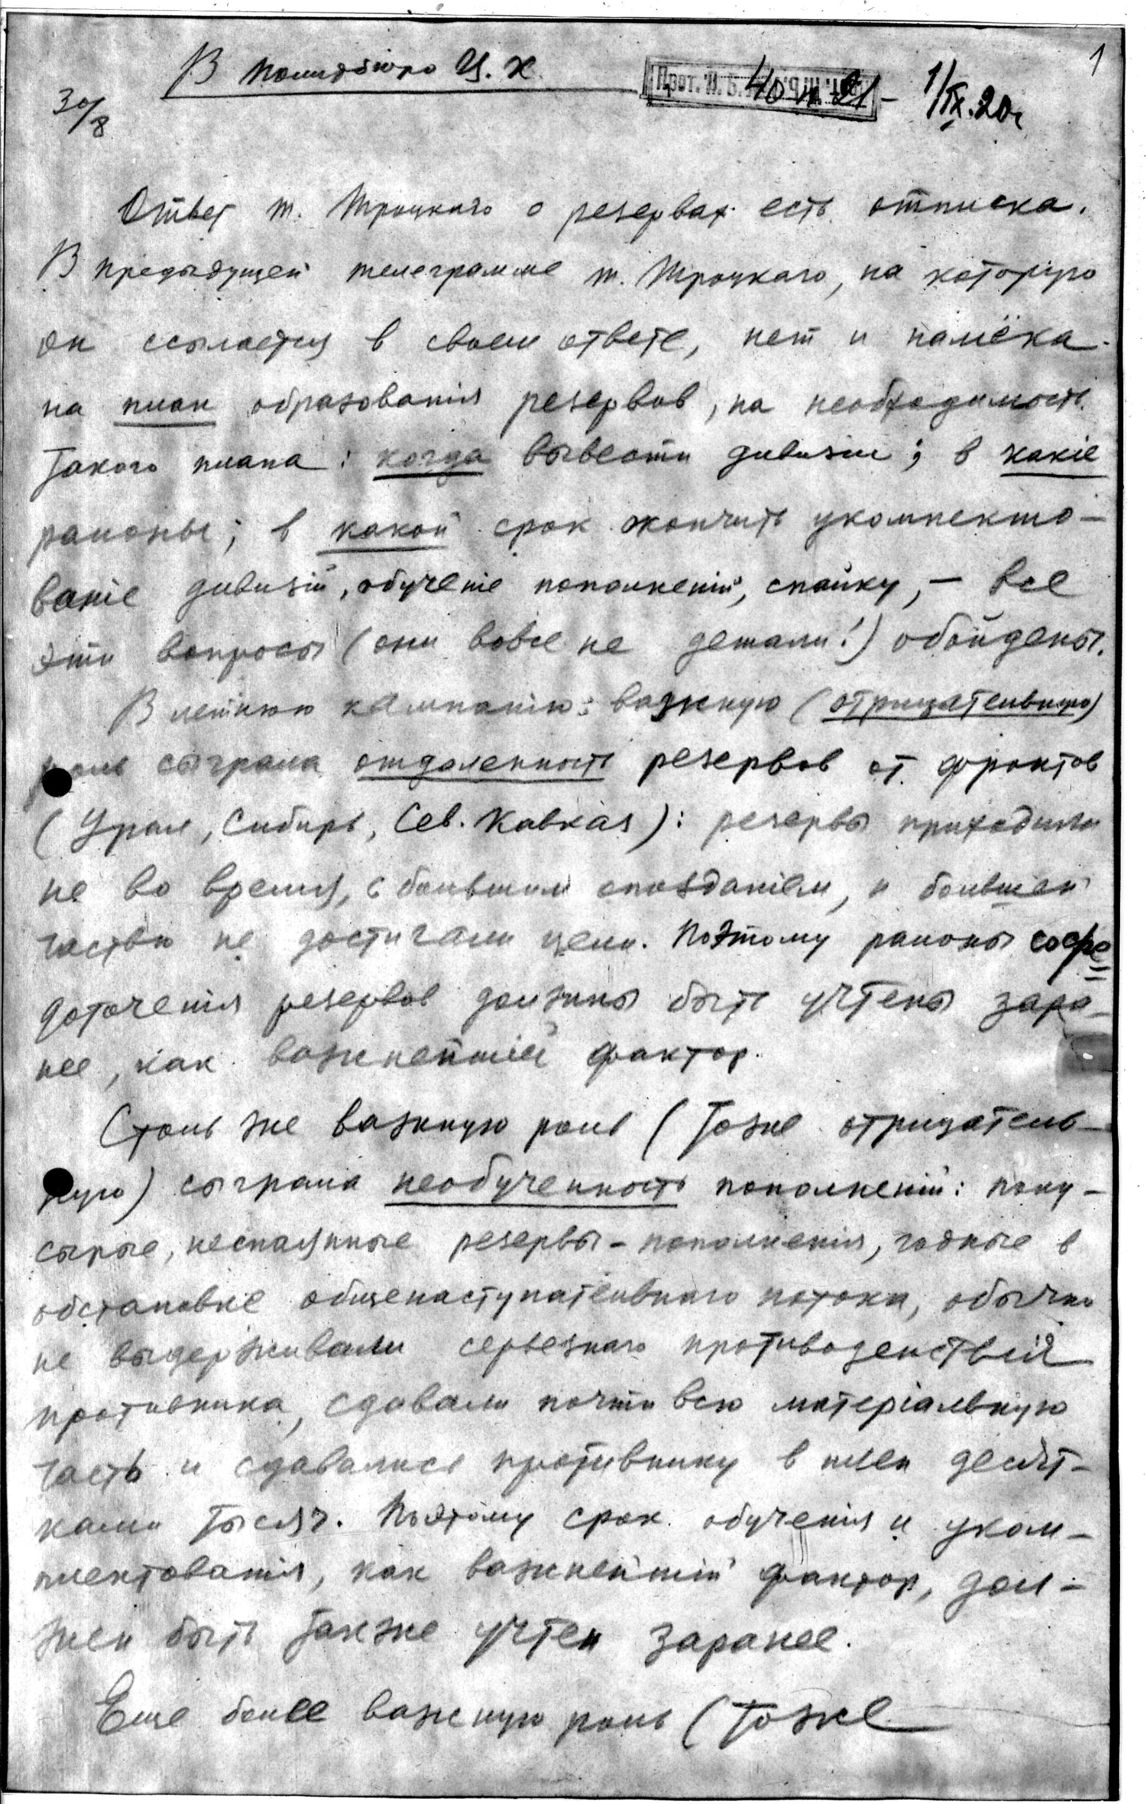 В Политбюро Ц.К.
1
30/8
Прот. П.Б. № 40 п. 21 – 1/IX.20г
Ответ т. Троцкаго о резервах есть отписка.
В предыдущей телеграмме т. Троцкаго, на которую
он ссылается в своем ответе, нет и намёка
на план образованія резервов, на необходимость
такого плана: когда вывести дивизіи; в какіе
районы; в какой срок кончить укомплекто-
ваніе дивизій, обученіе пополненій, спайку, – все
эти вопросы (они вовсе не детали!) обойдены.
В летнюю кампанію важную (отрицательную)
роль сыграла отдаленность резервов от фронтов
(Урал, Сибирь, Сев. Кавказ): резервы приходили
не во время, с большим опозданіем, и большей
частью не достигали цели. Поэтому районы сосре-
доточенія резервов должны быть учтены зара-
нее, как важнейшій фактор.
Столь же важную роль (тоже отрицатель-
ную) сыграла необученность пополненій: полу-
сырые, неспаянные резервы-пополненія, годные в
обстановке общенаступательнаго потока, обычно
не выдерживали серьезнаго противодействія
противника, сдавали почти всю матеріальную
часть и сдавались противнику в плен десят-
ками тысяч. Поэтому срок обученія и уком-
плектованія, как важнейшій фактор, дол-
жен быть также учтен заранее.
Еще более важную роль (тоже